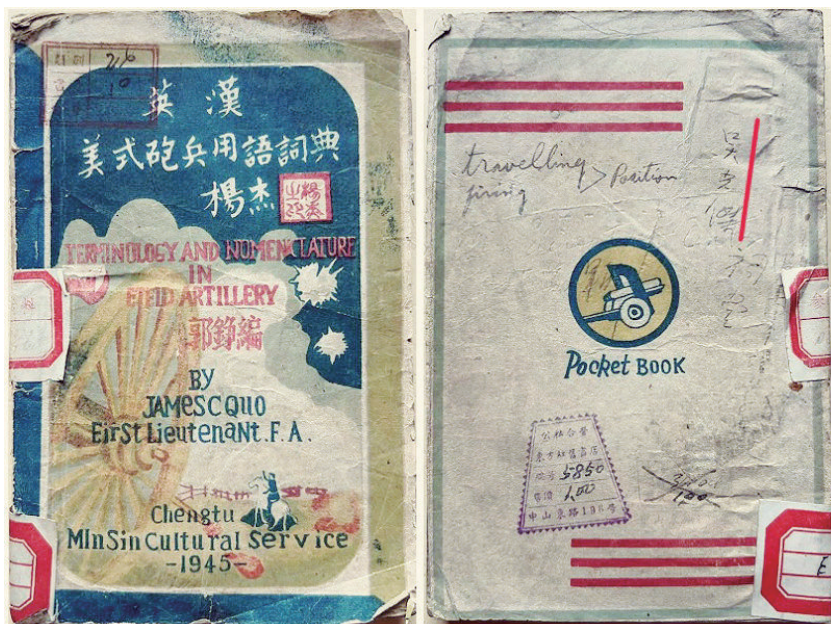 216
10
英漢
美式砲兵用語詞典
楊杰
TERMINOLOGY AND NOMENCLATURE
IN
FIELD ARTILLERY
郭錚編
BY
JAMES C QUO
First Lieutenant. F.A.
Chengtu
Min Sin Cultural Service
-1945-
travelling
firing > Position
Pocket BOOK
公私合營
東方红舊書店
5850
售價 1,00
中山東路
E